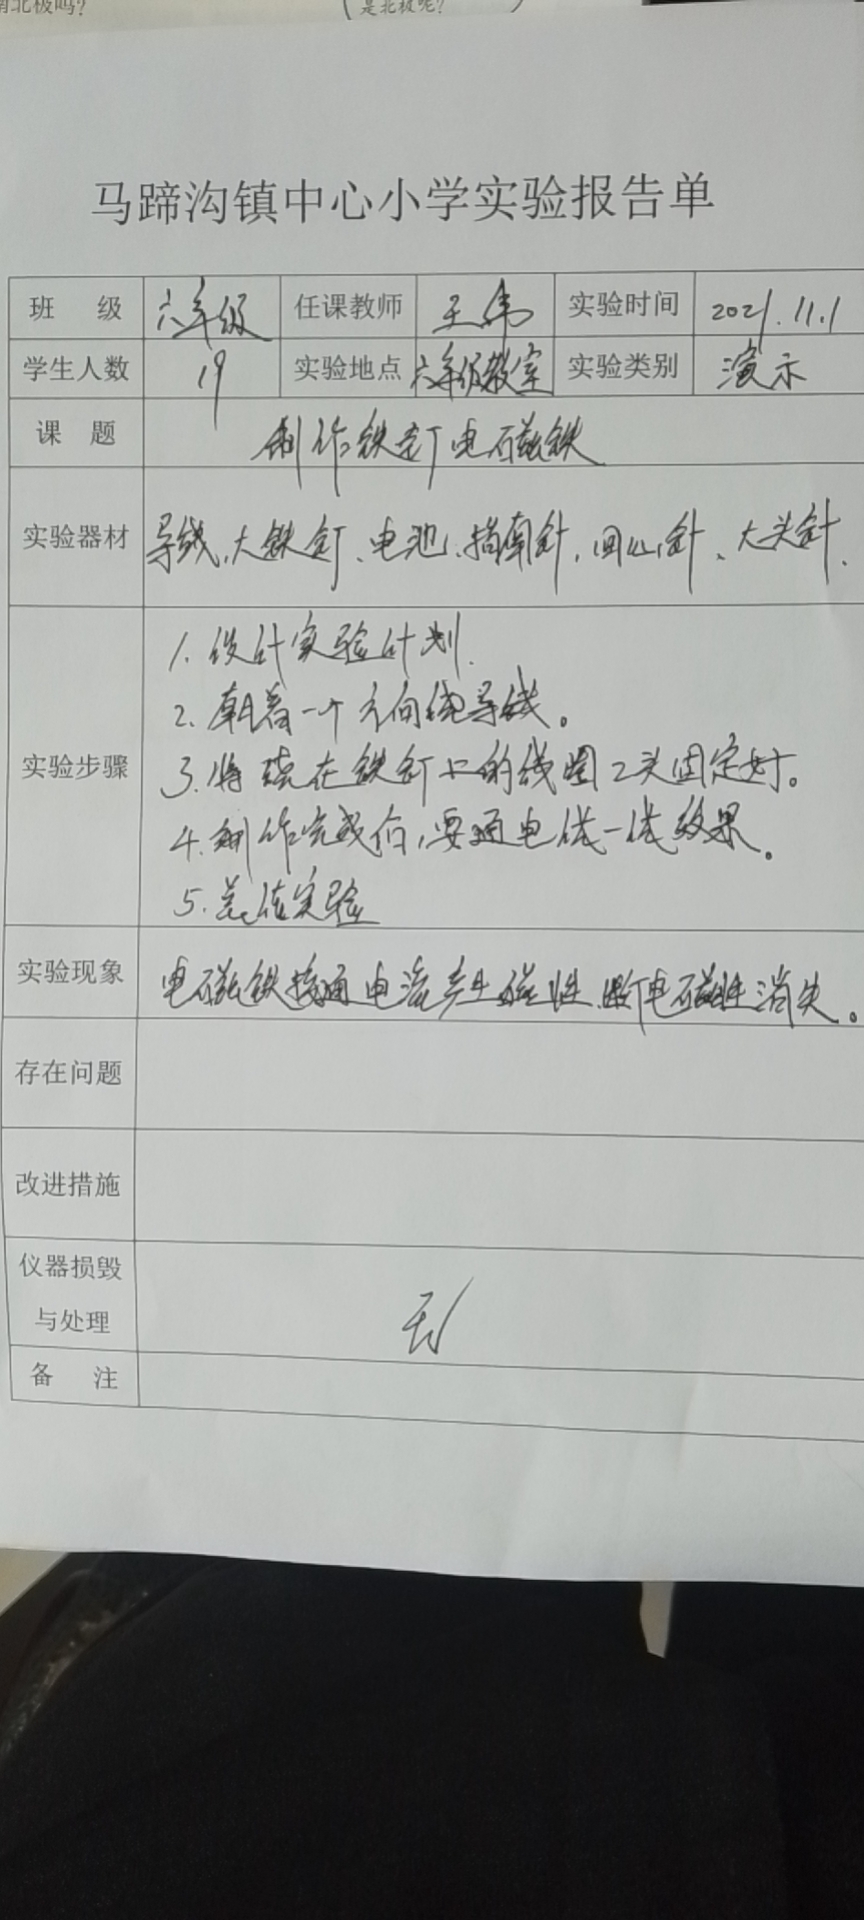 南北极吗？
是北极呢？
马蹄沟镇中心小学实验报告单
班 级 六年级 任课教师 王伟 实验时间 2021.11.1
学生人数 19 实验地点 六年级教室 实验类别 演示
课 题 制作铁钉电磁铁
实验器材 导线、大铁钉、电池、指南针、回心针、大头针.
1. 设计实验计划.
2. 朝着一个方向绕导线。
实验步骤 3. 将绕在铁钉上的线圈2头固定好。
4. 制作完成后,要通电试一试效果。
5. 总结实验
实验现象 电磁铁接通电流产生磁性、断电磁性消失。
存在问题
改进措施
仪器损毁
与处理 无
备 注